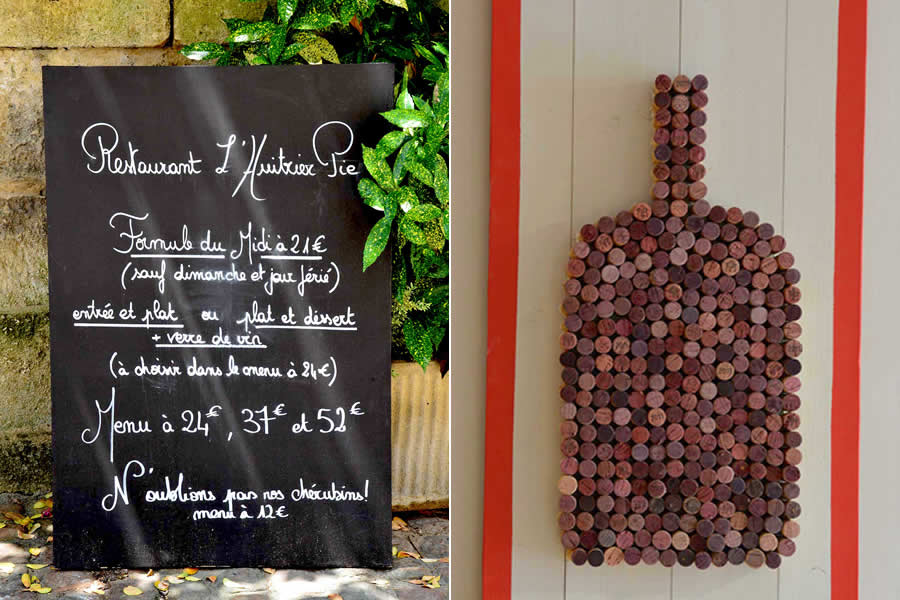 Restaurant L'Huitrier Pie
Formule du Midi à 21€
(sauf dimanche et jour férié)
entrée et plat ou plat et dessert
+ verre de vin
(à choisir dans le menu à 24€)
Menu à 24€, 37€ et 52€
N'oublions pas nos chérubins!
menu à 12€